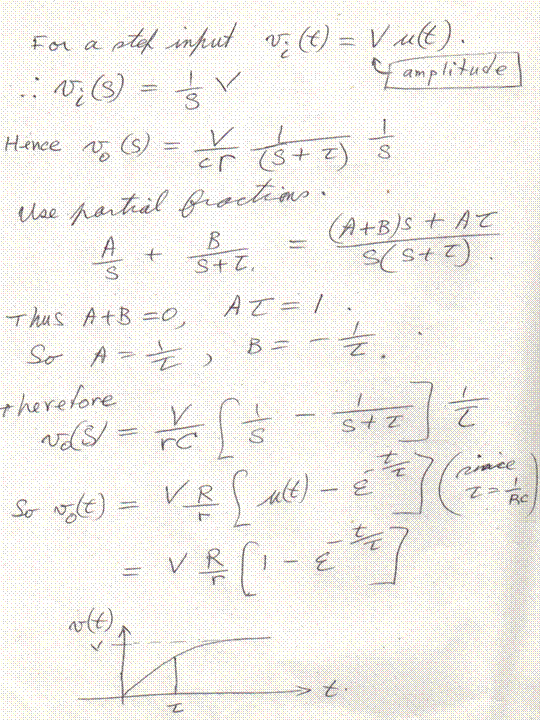 For a step input vᵢ(t) = V u(t).
amplitude
∴ vᵢ(s) = 1/s V
Hence v₀(s) = V/cr 1/(s+τ) 1/s
Use partial fractions.
A/s + B/s+τ. = (A+B)s + Aτ / s(s+τ).
Thus A+B=0, Aτ=1.
So A = 1/τ, B = -1/τ.
therefore
v₀(s) = V/rC [ 1/s - 1/s+τ ] 1/τ
So v₀(t) = V R/r [ u(t) - ε^-t/τ ] (since τ = 1/RC)
= V R/r [ 1 - ε^-t/τ ]
v(t)
V
τ
t.